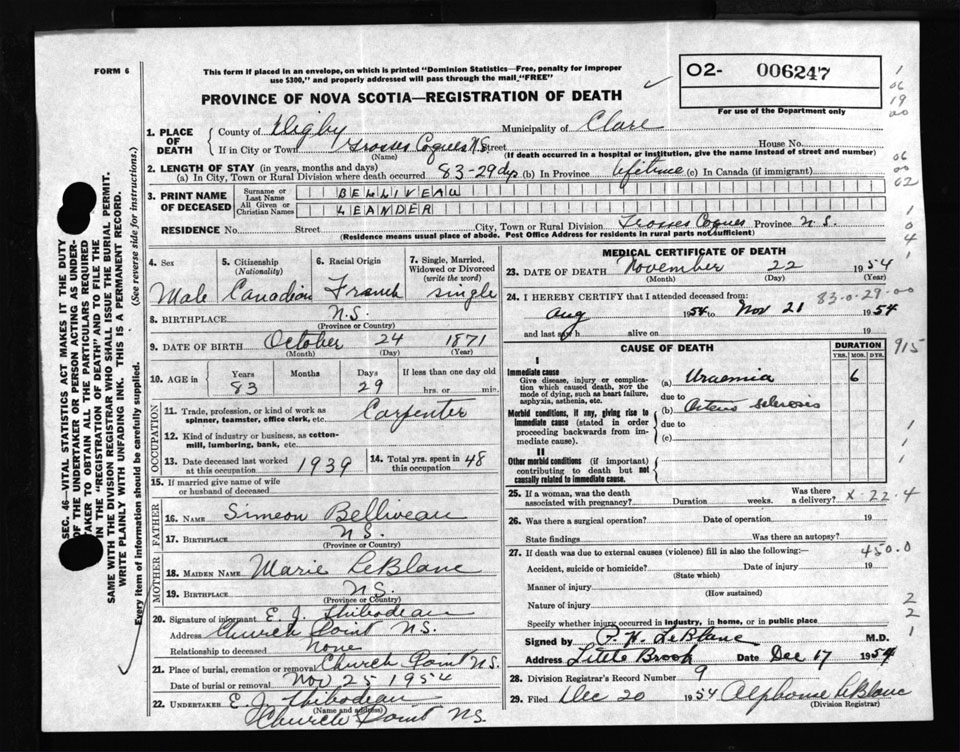 FORM 6
This form if placed in an envelope, on which is printed "Dominion Statistics—Free, penalty for improper
use $300," and properly addressed will pass through the mail "FREE"
PROVINCE OF NOVA SCOTIA—REGISTRATION OF DEATH
02- 006247
For use of the Department only
1
06
19
00
1. PLACE OF DEATH { County of Digby Municipality of Clare
If in City or Town Grosses Coques N.S. Street House No.
(Name) (If death occurred in a hospital or institution, give the name instead of street and number)
2. LENGTH OF STAY (in years, months and days)
(a) In City, Town or Rural Division where death occurred 83-29 dys (b) In Province lifetime (c) In Canada (if immigrant)
06
00
02
3. PRINT NAME OF DECEASED { Surname or Last Name BELLIVEAU
All Given or Christian Names LEANDER
1
0
4
RESIDENCE No. Street City, Town or Rural Division Grosses Coques Province N.S.
(Residence means usual place of abode. Post Office Address for residents in rural parts not sufficient)
4. Sex 5. Citizenship (Nationality) 6. Racial Origin 7. Single, Married, Widowed or Divorced (write the word)
Male Canadian French single
8. BIRTHPLACE N.S.
(Province or Country)
9. DATE OF BIRTH October 24 1871
(Month) (Day) (Year)
10. AGE in { Years Months Days If less than one day old
83 29 hrs. or min.
OCCUPATION
11. Trade, profession, or kind of work as spinner, teamster, office clerk, etc. Carpenter
12. Kind of industry or business, as cotton-mill, lumbering, bank, etc.
13. Date deceased last worked at this occupation 1939 14. Total yrs. spent in this occupation 48
15. If married give name of wife or husband of deceased
FATHER
16. NAME Simeon Belliveau
17. BIRTHPLACE N.S.
(Province or Country)
MOTHER
18. MAIDEN NAME Marie LeBlanc
19. BIRTHPLACE N.S.
(Province or Country)
20. Signature of informant E. J. Thibodeau
Address Church Point N.S.
Relationship to deceased none
21. Place of burial, cremation or removal Church Point N.S.
Date of burial or removal Nov 25 1954
22. UNDERTAKER E. J. Thibodeau
(Name and address)
Church Point N.S.
MEDICAL CERTIFICATE OF DEATH
23. DATE OF DEATH November 22 1954
(Month) (Day) (Year)
24. I HEREBY CERTIFY that I attended deceased from: 83-0-29-00
Aug 1954 to Nov 21 1954
and last saw h alive on 19
CAUSE OF DEATH DURATION
YRS. MOS. DYS.
915
I
Immediate cause
Give disease, injury or complication which caused death, NOT the mode of dying, such as heart failure, asphyxia, asthenia, etc.
(a) Uraemia 6
due to
Morbid conditions, if any, giving rise to immediate cause (stated in order proceeding backwards from immediate cause).
(b) Arterio sclerosis
due to
(c)
II
Other morbid conditions (if important) contributing to death but not causally related to immediate cause.
1
1
1
25. If a woman, was the death associated with pregnancy? Duration weeks. Was there a delivery? X-22.4
26. Was there a surgical operation? Date of operation 19
State findings Was there an autopsy?
27. If death was due to external causes (violence) fill in also the following:— 450.0
Accident, suicide or homicide? Date of injury 19
(State which)
Manner of injury
(How sustained)
Nature of injury
Specify whether injury occurred in industry, in home, or in public place
2
2
1
Signed by P. H. LeBlanc M.D.
Address Little Brook Date Dec 17 1954
28. Division Registrar's Record Number 9
29. Filed Dec 20 1954 Alphonse LeBlanc
(Division Registrar)
SEC. 46—VITAL STATISTICS ACT MAKES IT THE DUTY
OF THE UNDERTAKER OR PERSON ACTING AS UNDER-
TAKER TO OBTAIN ALL THE PARTICULARS REQUIRED
IN THE "REGISTRATION OF DEATH" AND TO FILE THE
SAME WITH THE DIVISION REGISTRAR WHO SHALL ISSUE THE BURIAL PERMIT.
WRITE PLAINLY WITH UNFADING INK. THIS IS A PERMANENT RECORD.
Every item of Information should be carefully supplied. (See reverse side for instructions.)